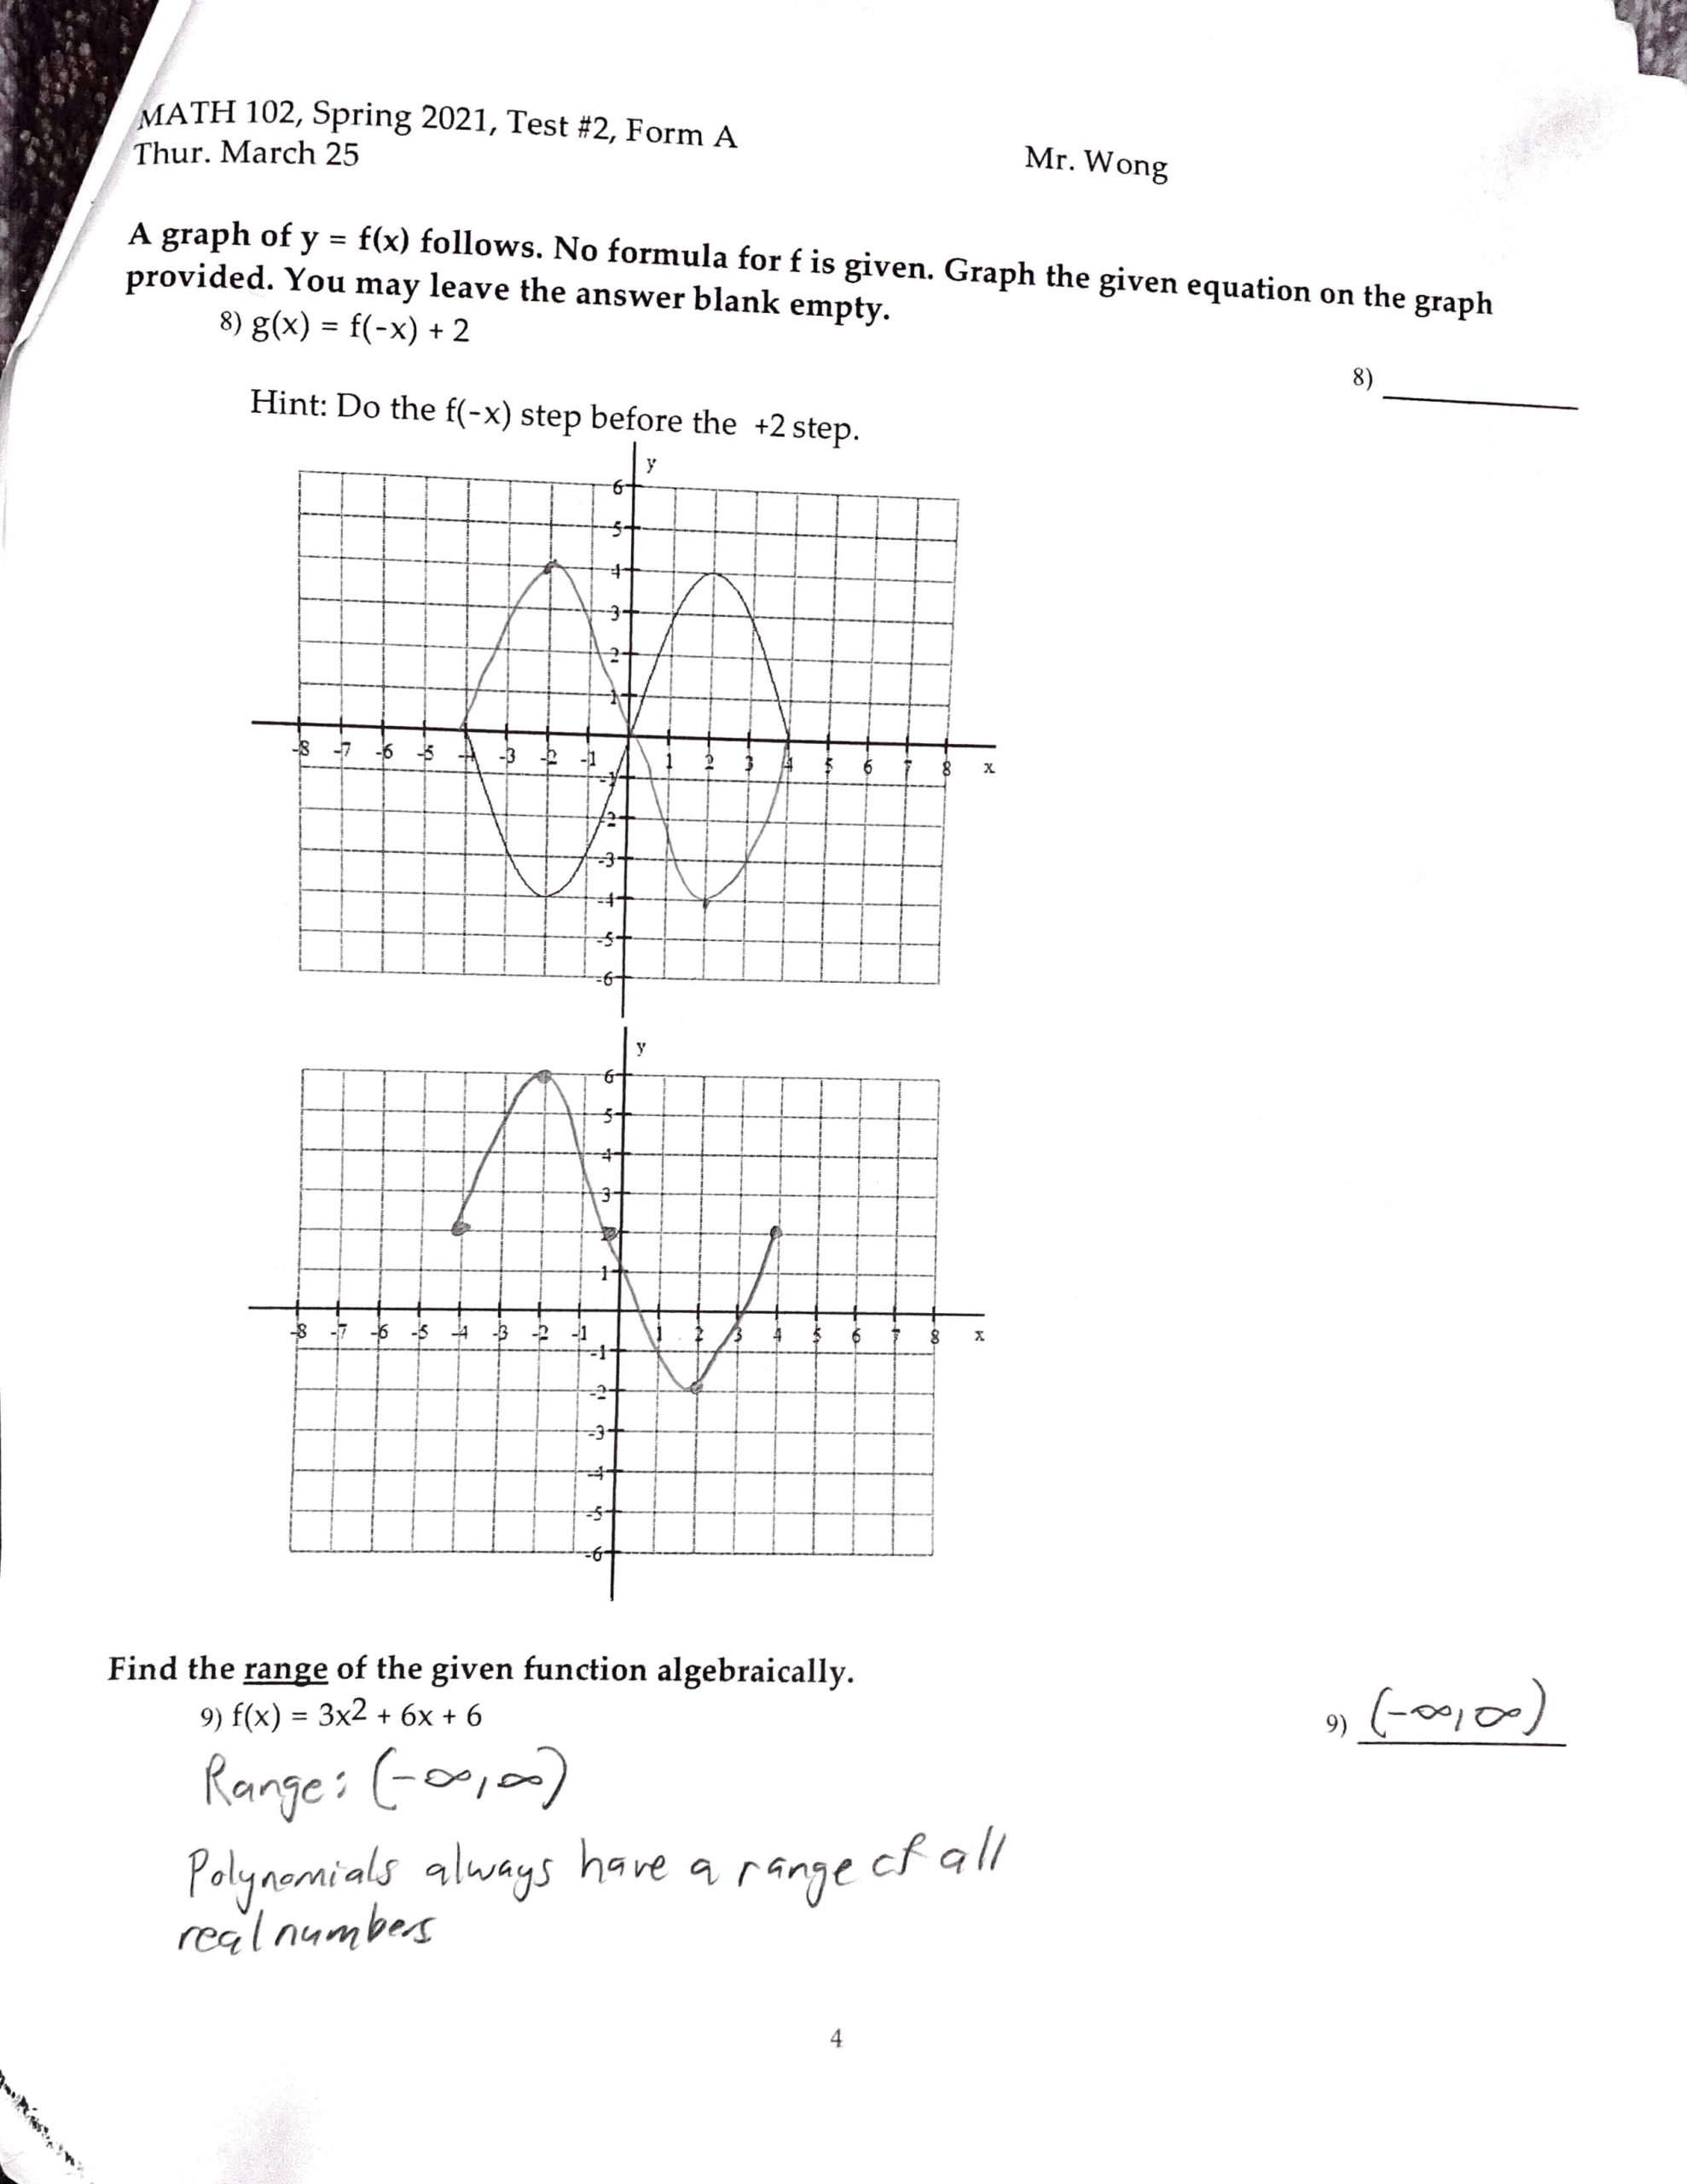 MATH 102, Spring 2021, Test #2, Form A
Thur. March 25
Mr. Wong
A graph of y = f(x) follows. No formula for f is given. Graph the given equation on the graph
provided. You may leave the answer blank empty.
8) g(x) = f(-x) + 2
8)
Hint: Do the f(-x) step before the +2 step.
y
6
5
4
3
2
1
-8 -7 -6 -5 -4 -3 -2 -1 1 2 3 4 5 6 7 8 x
-1
-2
-3
-4
-5
-6
y
6
5
4
3
1
-8 -7 -6 -5 -4 -3 -2 -1 1 2 3 4 5 6 7 8 x
-1
-2
-3
-4
-5
-6
Find the range of the given function algebraically.
9) f(x) = 3x2 + 6x + 6
9) (-∞,∞)
Range: (-∞,∞)
Polynomials always have a range of all
real numbers
4